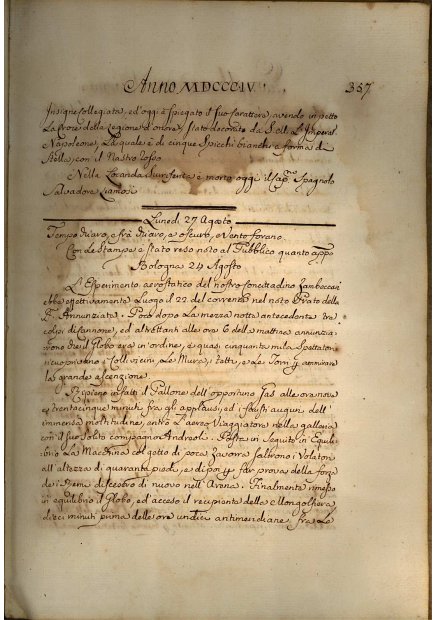 Anno MDCCCIV.
357
Insigne Collegiata, ed oggi à spiegato il suo carattere avendo in petto
La Croce della Legione d'onore, stato decorato da S. M. L'Imperat.
Napoleone, La quale è di cinque Spicchi bianchi a forma di
Stella, con il Nastro rosso.
Nella Locanda è morto oggi il Cap.no Spagnolo
Salvadore
Lunedì 27 Agosto
Tempo Quaro, e frà Quaro, e oscuro, e Vento forano.
Con Le Stampe è stato reso noto al Pubblico quanto appo
Bologna 24 Agosto
L'Esperimento aerostatico del nostro concittadino Zambeccari
ebbe effettivamente Luogo il 22 del corrente nel noto Prato della
Annunziata. Poco dopo La mezza notte antecedente tre
colpi di cannone, ed altrettanti alle ore 6 della mattina annunzia-
rono che il Globo era in ordine, e quasi cinquanta mila Spettatori
ricuoprirono i Colli vicini, Le Mura, i tetti, e Le Torri p ammirare
la grande ascenzione.
Ripieno in fatti il Pallone dell'opportuno gas alle ore nove
e trentacinque minuti fra gli applausi, ed i fausti augurj dell'
immensa moltitudine, entrò L'aereo Viaggiatore nella galleria
con il suo solito compagno Andreoli. Posta in seguito in equili-
brio La Macchina col getto di poca zavorra saltrono i Volatori
all'altezza di quaranta piedi, e di poi p far prova della forza
de' remi discesero di nuovo nell'Arena. Finalmente rimesso
in equilibrio il Globo, ed acceso il recipiente della Mongolfiera
dieci minuti prima delle ore undici antimeridiane fra Le